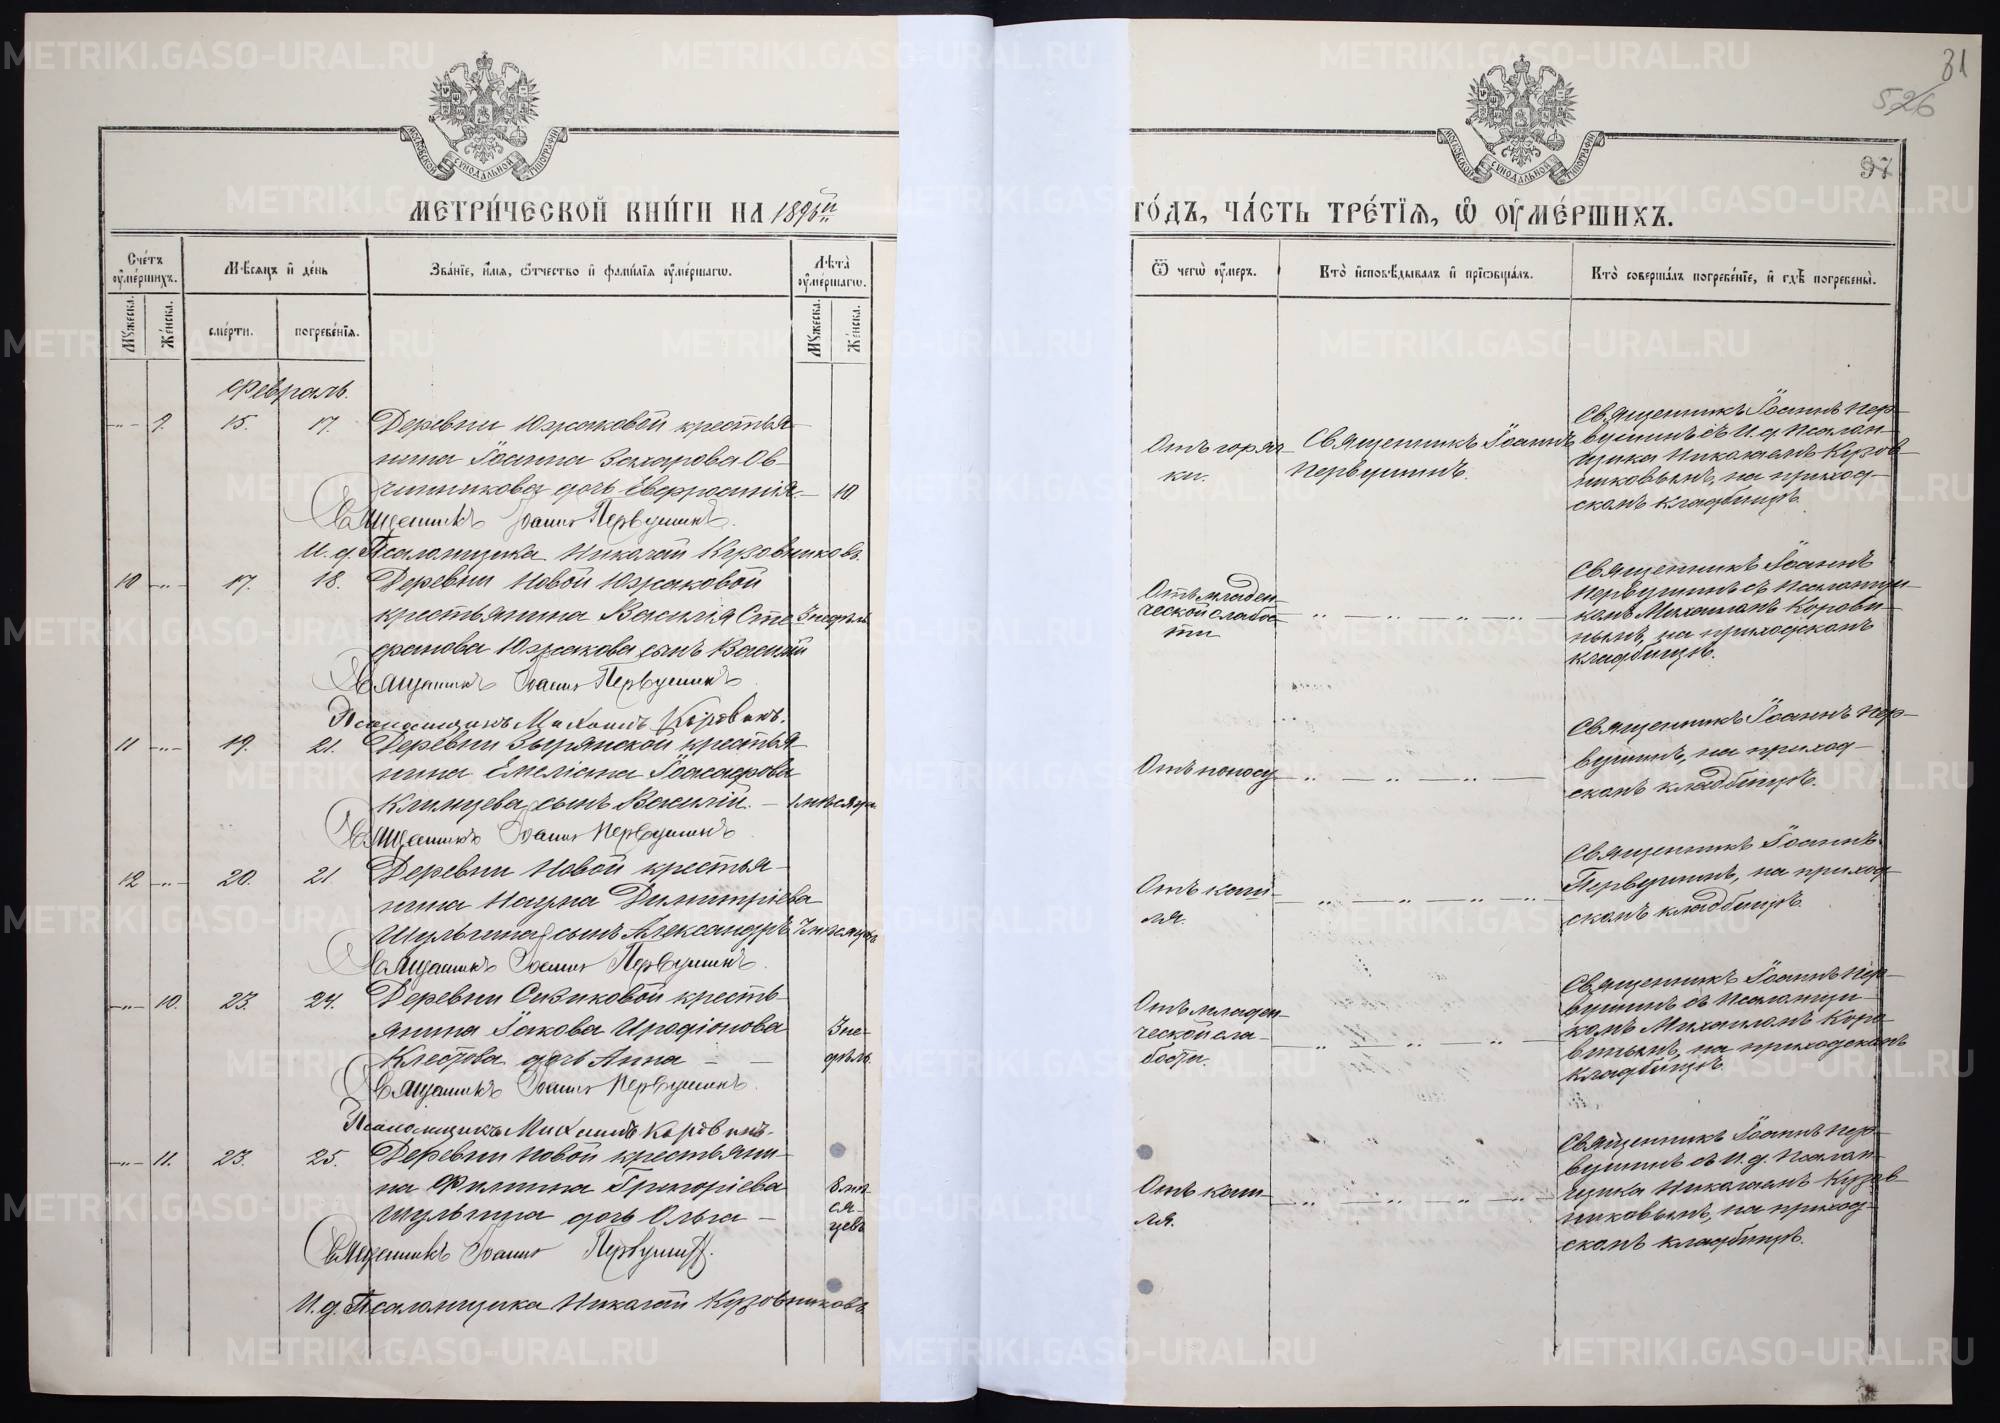 31
526
37
МОСКОВСКОЙ СѴНОДАЛЬНОЙ ТИПОГРАФІИ
МОСКОВСКОЙ СѴНОДАЛЬНОЙ ТИПОГРАФІИ
МЕТРИ́ЧЕСКОЙ КНИ́ГИ НА 1896й
ГО́ДЪ, ЧА́СТЬ ТРЕ́ТІЯ, Ѽ ОУМЕ́РШИХЪ.
Сче́тъ оуме́ршихъ.
Мꙋжеска.
Же́нска.
Мѣ́сяцъ и де́нь
сме́рти.
погребе́нїя.
Зва́нїе, и́мя, ѻ́тчество и фами́лїя оуме́ршагѡ.
Лѣта̀ оуме́ршагѡ.
Мꙋжеска.
Же́нска.
Ѿ чегѡ̀ оу́меръ.
Кто̀ исповѣ́дывалъ и прїѡбща́лъ.
Кто̀ соверша́лъ погребе́нїе, и гдѣ̀ погребены̀.
Февраль.
—„— 9. 15. 17. Деревни Южаковой крестья-
нина Іоанна Захарова Ов-
чинникова дочь Евфросинія. — 10
Священникъ Іоаннъ Первушинъ.
И. д. Псаломщика Николай Кузовниковъ.
Отъ горяч-
ки.
Священникъ Іоаннъ
Первушинъ.
Священникъ Іоаннъ Пер-
вушинъ съ И. д. Псалом-
щика Николаемъ Кузов-
никовымъ, на приход-
скомъ кладбищѣ.
10 —„— 17. 18. Деревни Новой Южаковой
крестьянина Василія Сте- 3 недѣль
фанова Южакова сынъ Василій
Священникъ Іоаннъ Первушинъ.
Псаломщикъ Михаилъ Коровинъ.
Отъ младен-
ческой слабос-
ти
„ — „ — „ — „ —
Священникъ Іоаннъ
Первушинъ съ Псаломщи-
комъ Михаиломъ Корови-
нымъ, на приходскомъ
кладбищѣ.
11 —„— 19. 21. Деревни Зырянской крестья-
нина Емеліана Іоасафова
Клинцева сынъ Василій. — 1 мѣсяца
Священникъ Іоаннъ Первушинъ
Отъ поносу
„ — „ — „ — „ —
Священникъ Іоаннъ Пер-
вушинъ, на приход-
скомъ кладбищѣ.
12 —„— 20. 21. Деревни Новой крестья-
нина Наума Димитріева
Шульгина сынъ Александръ 7 мѣсяцевъ
Священникъ Іоаннъ Первушинъ.
Отъ каш-
ля.
— „ — „ — „ — „ —
Священникъ Іоаннъ
Первушинъ, на приход-
скомъ кладбищѣ.
—„— 10. 23. 24. Деревни Сизиковой кресть-
янина Іакова Иродіонова 3 не-
Клестова дочь Анна — — дѣль
Священникъ Іоаннъ Первушинъ.
Псаломщикъ Михаилъ Коровинъ.
Отъ младен-
ческой сла-
бости.
— „ — „ — „ — „ —
Священникъ Іоаннъ Пер-
вушинъ съ Псаломщи-
комъ Михаиломъ Коро-
винымъ, на приходскомъ
кладбищѣ.
—„— 11. 23. 25. Деревни Новой крестьяни-
на Филиппа Григоріева 8 мѣ-
Шульгина дочь Ольга — ся-
цевъ
Священникъ Іоаннъ Первушинъ.
И. д. Псаломщика Николай Кузовниковъ.
Отъ каш-
ля.
„ — „ — „ — „ —
Священникъ Іоаннъ Пер-
вушинъ съ И. д. Псалом-
щика Николаемъ Кузов-
никовымъ, на приход-
скомъ кладбищѣ.
METRIKI.GASO-URAL.RU